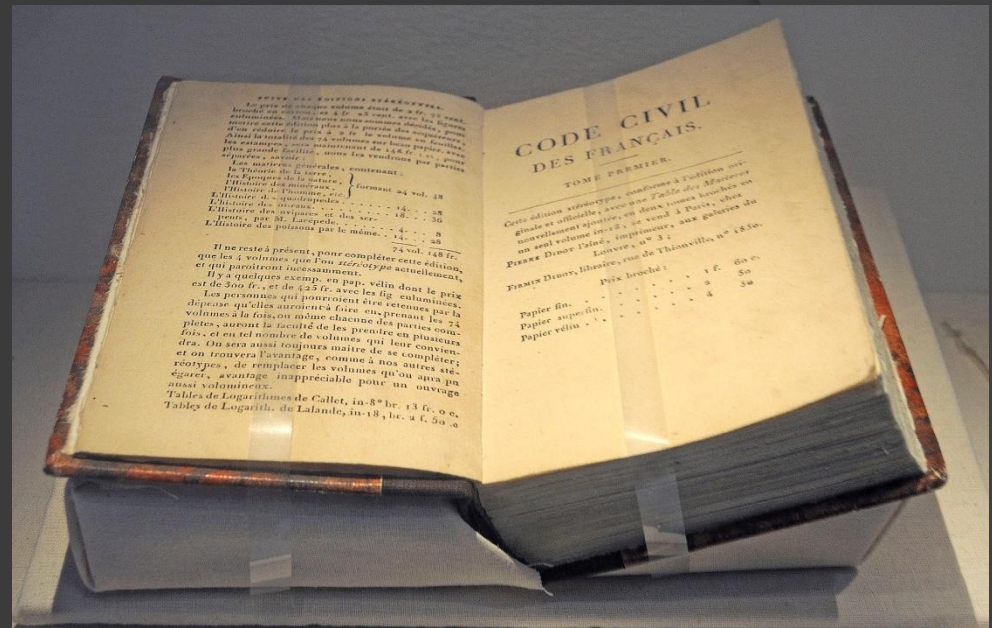 SUITE DES ÉDITIONS STÉRÉOTYPES.
Le prix de chaque volume étoit de 2 fr. 75 cent.
broché en carton, et 4 fr. 25 cent. avec les figures
enluminées. Mais nous nous sommes décidés, pour
mettre cette édition plus à la portée des acquéreurs,
d'en réduire le prix à 2 fr le volume en feuilles.
Ainsi la totalité des 74 volumes sur beau papier, avec
les estampes, sera maintenant de 148 fr.; et, pour
plus grande facilité, nous les vendrons par parties
séparées, savoir:
Les matieres générales, contenant:
la Théorie de la terre,
les Époques de la nature,
l'Histoire des minéraux,
l'Histoire de l'homme, etc. } formant 24 vol. 48
L'Histoire des quadrupedes. . . . . . . 14. . . 28
L'Histoire des oiseaux. . . . . . . . 18. . . 36
L'Histoire des ovipares et des ser-
pents, par M. Lacépede. . . . . . 4. . . 8
L'Histoire des poissons par le même. . 14. . . 28
74 vol. 148 fr.
Il ne reste à présent, pour compléter cette édition,
que les 4 volumes que l'on stéréotype actuellement,
et qui paroitront incessamment.
Il y a quelques exemp. en pap. vélin dont le prix
est de 300 fr., et de 425 fr. avec les fig enluminées.
Les personnes qui pourroient être retenues par la
dépense qu'elles auroient à faire en prenant les 74
volumes à la fois, ou même chacune des parties com-
pletes, auront la faculté de les prendre en plusieurs
fois, et en tel nombre de volumes qui leur convien-
dra. On sera aussi toujours maitre de se compléter;
et on trouvera l'avantage, comme à nos autres sté-
réotypes, de remplacer les volumes qu'on aura pu
égarer, avantage inappréciable pour un ouvrage
aussi volumineux.
Tables de Logarithmes de Callet, in-8° br. 13 fr. 0 c.
Tables de Logarith. de Lalande, in-18, br. 2 f. 50 .c
CODE CIVIL
DES FRANÇAIS.
TOME PREMIER.
Cette édition stéréotype, conforme à l'édition ori-
ginale et officielle, avec une Table des Matieres
nouvellement ajoutée, en deux tomes brochés en
un seul volume in-18, se vend à Paris, chez
PIERRE DIDOT l'aîné, imprimeur, aux galeries du
Louvre, n° 3;
FIRMIN DIDOT, libraire, rue de Thionville, n° 1850.
Prix broché:
Papier fin. . . . . . . 1 f. 60 c.
Papier superfin. . . . . . 2 50
Papier vélin . . . . . . 4 50